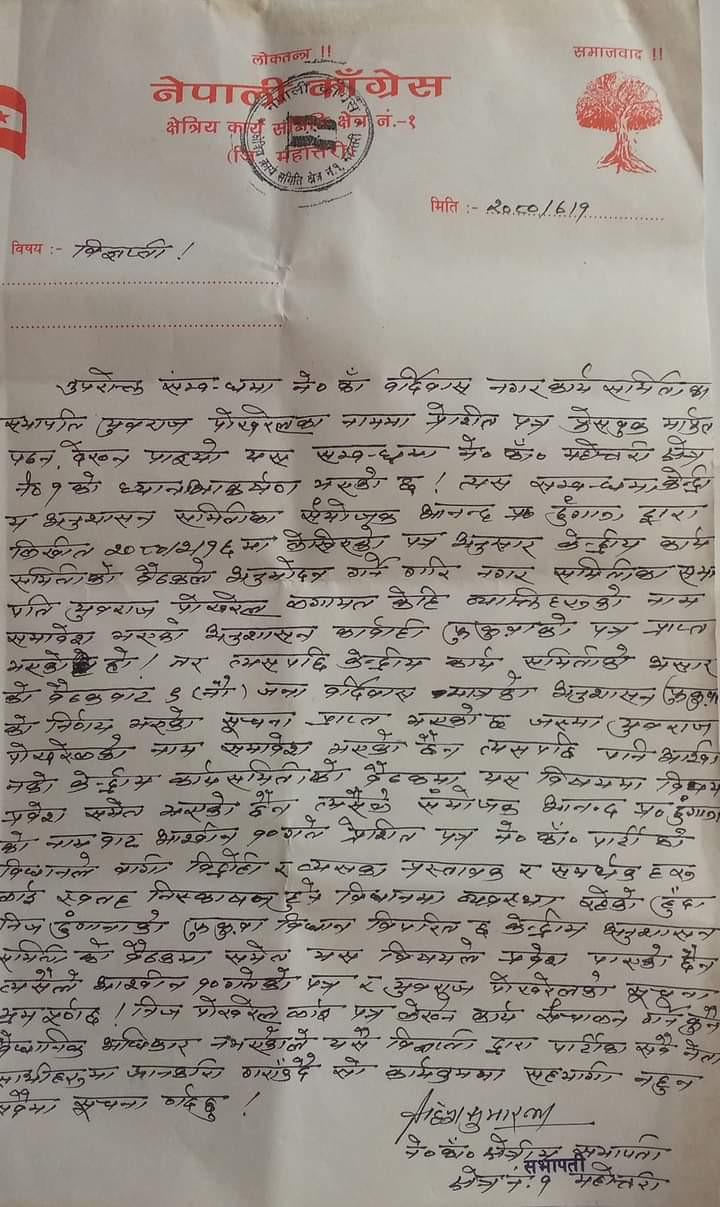 लोकतन्त्र !!
समाजवाद !!
नेपाली काँग्रेस
क्षेत्रिय कार्य समिति क्षेत्र नं.-१
(जि. महोत्तरी)
मिति :- २०८०/६/१
विषय :- विज्ञप्ती !
उपरोक्त संम्व-धमा ने० काँ वर्दिवास नगर कार्य समितिका
सभापति युवराज पोखरेलका नाममा प्रेशीत पत्र फेसवुक मार्फत
पढ्न, देख्न पाइयो यस सम्व-धमा ने० काँ० महोत्तरी क्षेत्र
नं० १ को ध्यानआकर्षण भएको छ ! त्यस सम्व-धमा केन्द्री
य अनुशासन समितीका संयोजक आनन्द प्र० ढुंगाना द्वारा
लिखीत मा लेखिएको पत्र अनुसार केन्द्रीय कार्य
समितीको वैठकले अनुमोदन गर्ने गरि नगर समितिका सभा
पति युवराज पोखरेल लगायत केहि व्याक्तिहरुको नाम
समावेश भएको अनुशासन कार्वाही फुकुवाको पत्र प्राप्त
भएको हो ! तर त्यसपछि केन्द्रीय कार्य समितीको असार
को वैठकवाट ९ (नौ) जना वर्दिवास मात्रको अनुशासन फुकुवा
को निर्णय भएको सूचना प्राप्त भएको छ जसमा युवराज
पोखरेलको नाम समावेश भएको छैन त्यसपछि पनि
को केन्द्रीय कार्यसमितीको वैठकमा यस विषयमा विषय
प्रवेश समेत भएको छैन त्यसैले संयोजक आनन्द प्र० ढुंगाना
को नाम वाट आश्वीन १० गते प्रेशित पत्र ने० काँ० पार्टी को
विधानले वागी विद्रोही र त्यसका प्रस्तावक र समर्थक हरु
लाई स्वतह निस्काषन हुने विधानमा व्यवस्था रहेको हुँदा
निज ढुंगाना को फुकुवा विधान विपरित छ केन्द्रीय अनुशासन
समिती को वैठकमा समेत यस विषयले प्रवेश पाएको छैन
त्यसैले आश्वीन १० गतेको पत्र र युवराज पोखरेलको सूचना
भ्रमपूर्ण छ ! निज पोखरेल लाई पत्र लेख्न कार्य संचालन गर्न कुनै
वैधानिक अधिकार नभएकोले यसै विज्ञप्ती द्वारा पार्टीका सवै नेता
साथीहरुमा जानकारी गराउँदै सो कार्यक्रममा सहभागी नहुन
सवैमा सूचना गर्दछु !
ने० काँ० क्षेत्रीय सभापती
सभापती
क्षेत्र नं. १ महोत्तरी